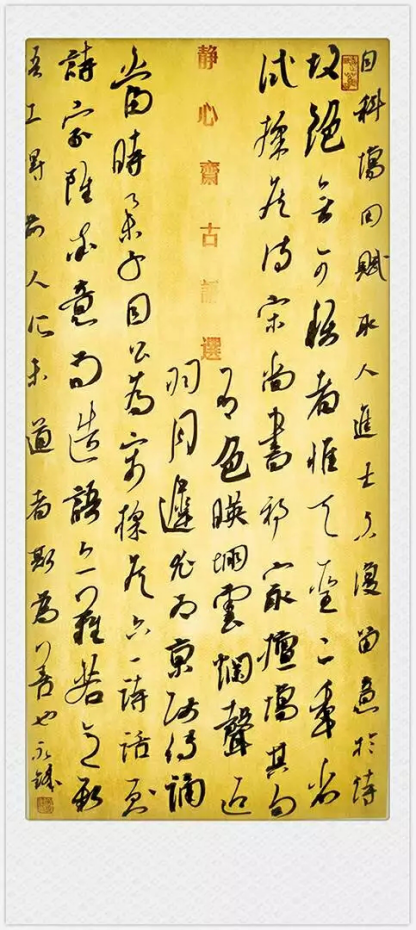 自科場用賦取人進士不復留意於詩
故絕無可稱者惟天聖二年省
試採侯詩宋尚書祁最擅場其句
有色映堋雲爛聲迎
靜心齋古詩選
羽月遲尤為京師傳誦
當時舉子目公為宋採侯六一詩話曰
詩家雖率意而造語亦難若意新
語工得前人所未道者斯為善也